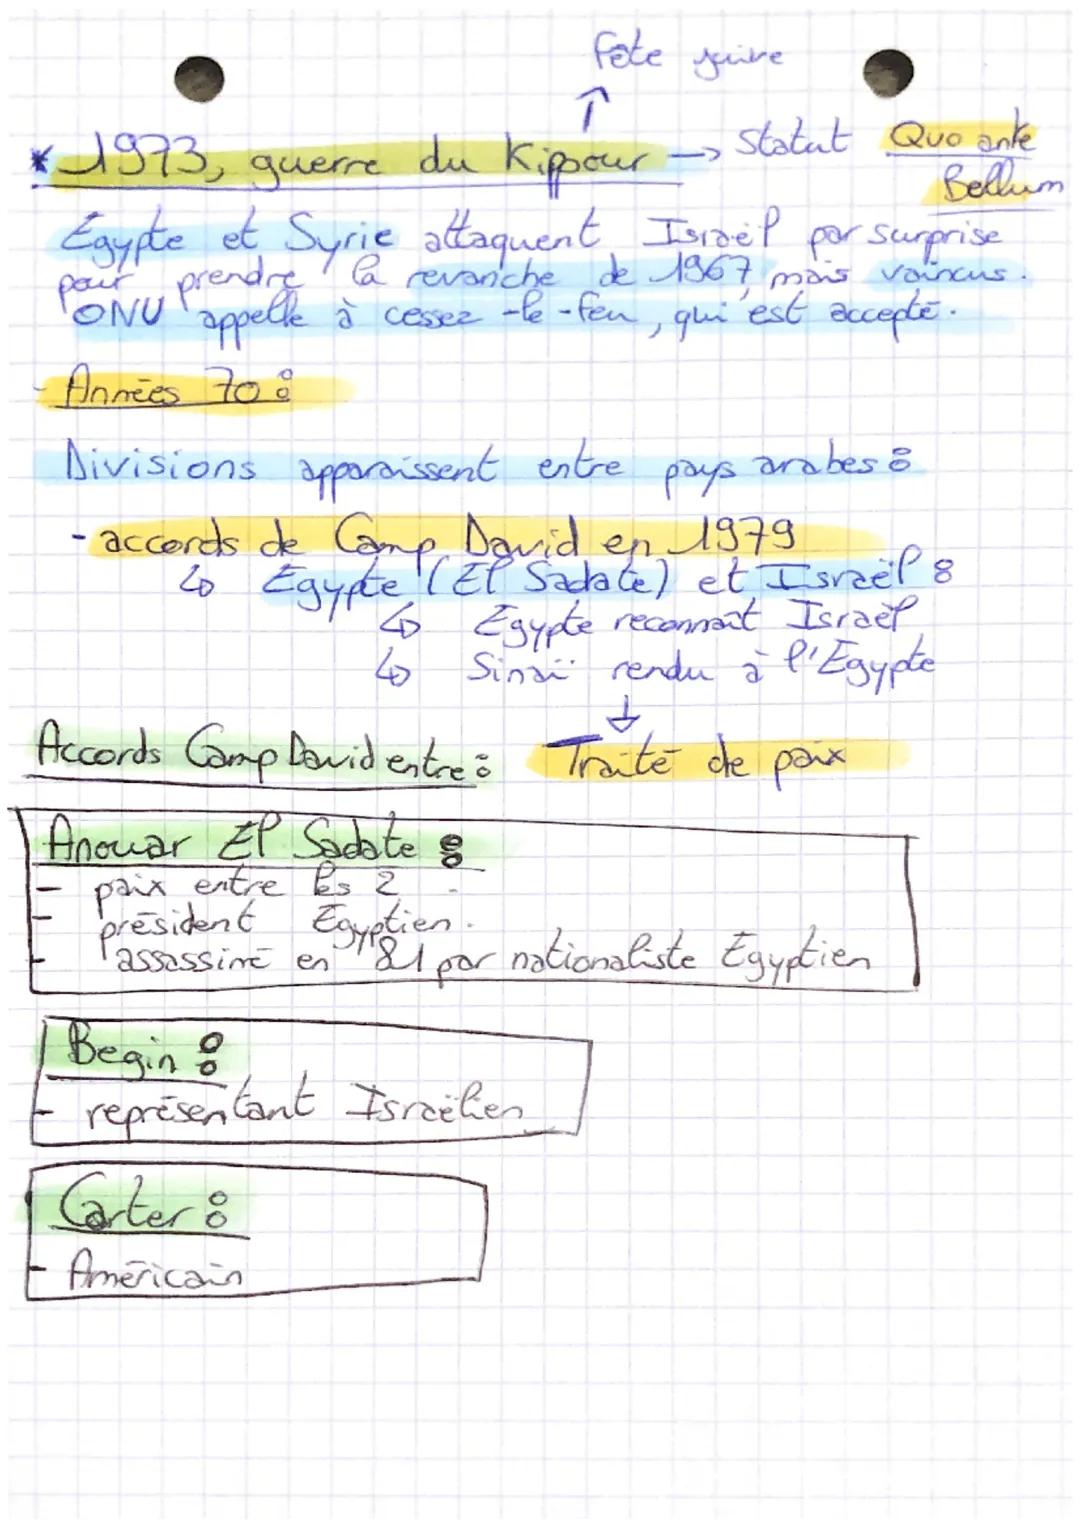 fête juive
* 1973, guerre du Kippour → statut Quo ante
Bellum
Égypte et Syrie attaquent Israël par surprise
pour prendre la revanche de 1967, mais vaincus.
ONU appelle à cessez-le-feu, qui est accepté.
- Années 70 :
Divisions apparaissent entre pays arabes :
- accords de Camp David en 1979
↳ Égypte (El Sadate) et Israël :
↳ Égypte reconnaît Israël
↳ Sinaï rendu à l'Égypte
Accords Camp David entre : Traité de paix
Anouar El Sadate :
- paix entre les 2.
- président Égyptien.
- assassiné en 81 par nationaliste Égyptien
Begin :
- représentant Israëlien
Carter :
- Américain